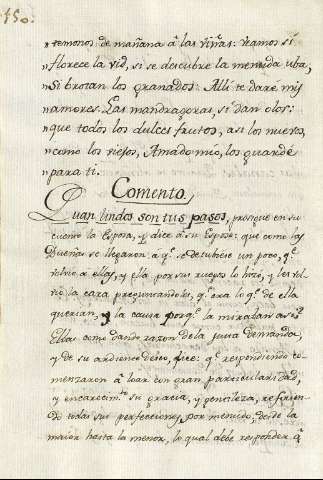 150.
"temonos de mañana â las viñas: veamos si
"florece la vid, si se descubre la menuda uba,
"si brotan los granados: Alli te dare mis
"amores. Las mandragoras, si dan olor:
"que todos los dulces frutos, asi los nuevos,
"como los viejos, Amado mio, los guarde
"para ti.
Comento.
Quan lindos son tus pasos, prosigue en su
cuento la Esposa, y dice â su Esposo: que como las
Dueñas se llegaron a qe. se descubriese un poco, qe.
volvio a ellas, y ella por sus ruegos lo hizo, y les vol
vio la cara preguntandoles, qe. era lo qe. de ella
querian, y la causa porqe. la miraban asi:
Ellas como dando razon de la justa demanda,
y de su ardiente deseo, dice: qe. respondiendo co
menzaron â loar con gran particularidad,
y encarecimto. su gracia, y gentileza, refirien
do todas sus perfecciones, por menudo, desde la
maior hasta la menor, lo qual debe responder â